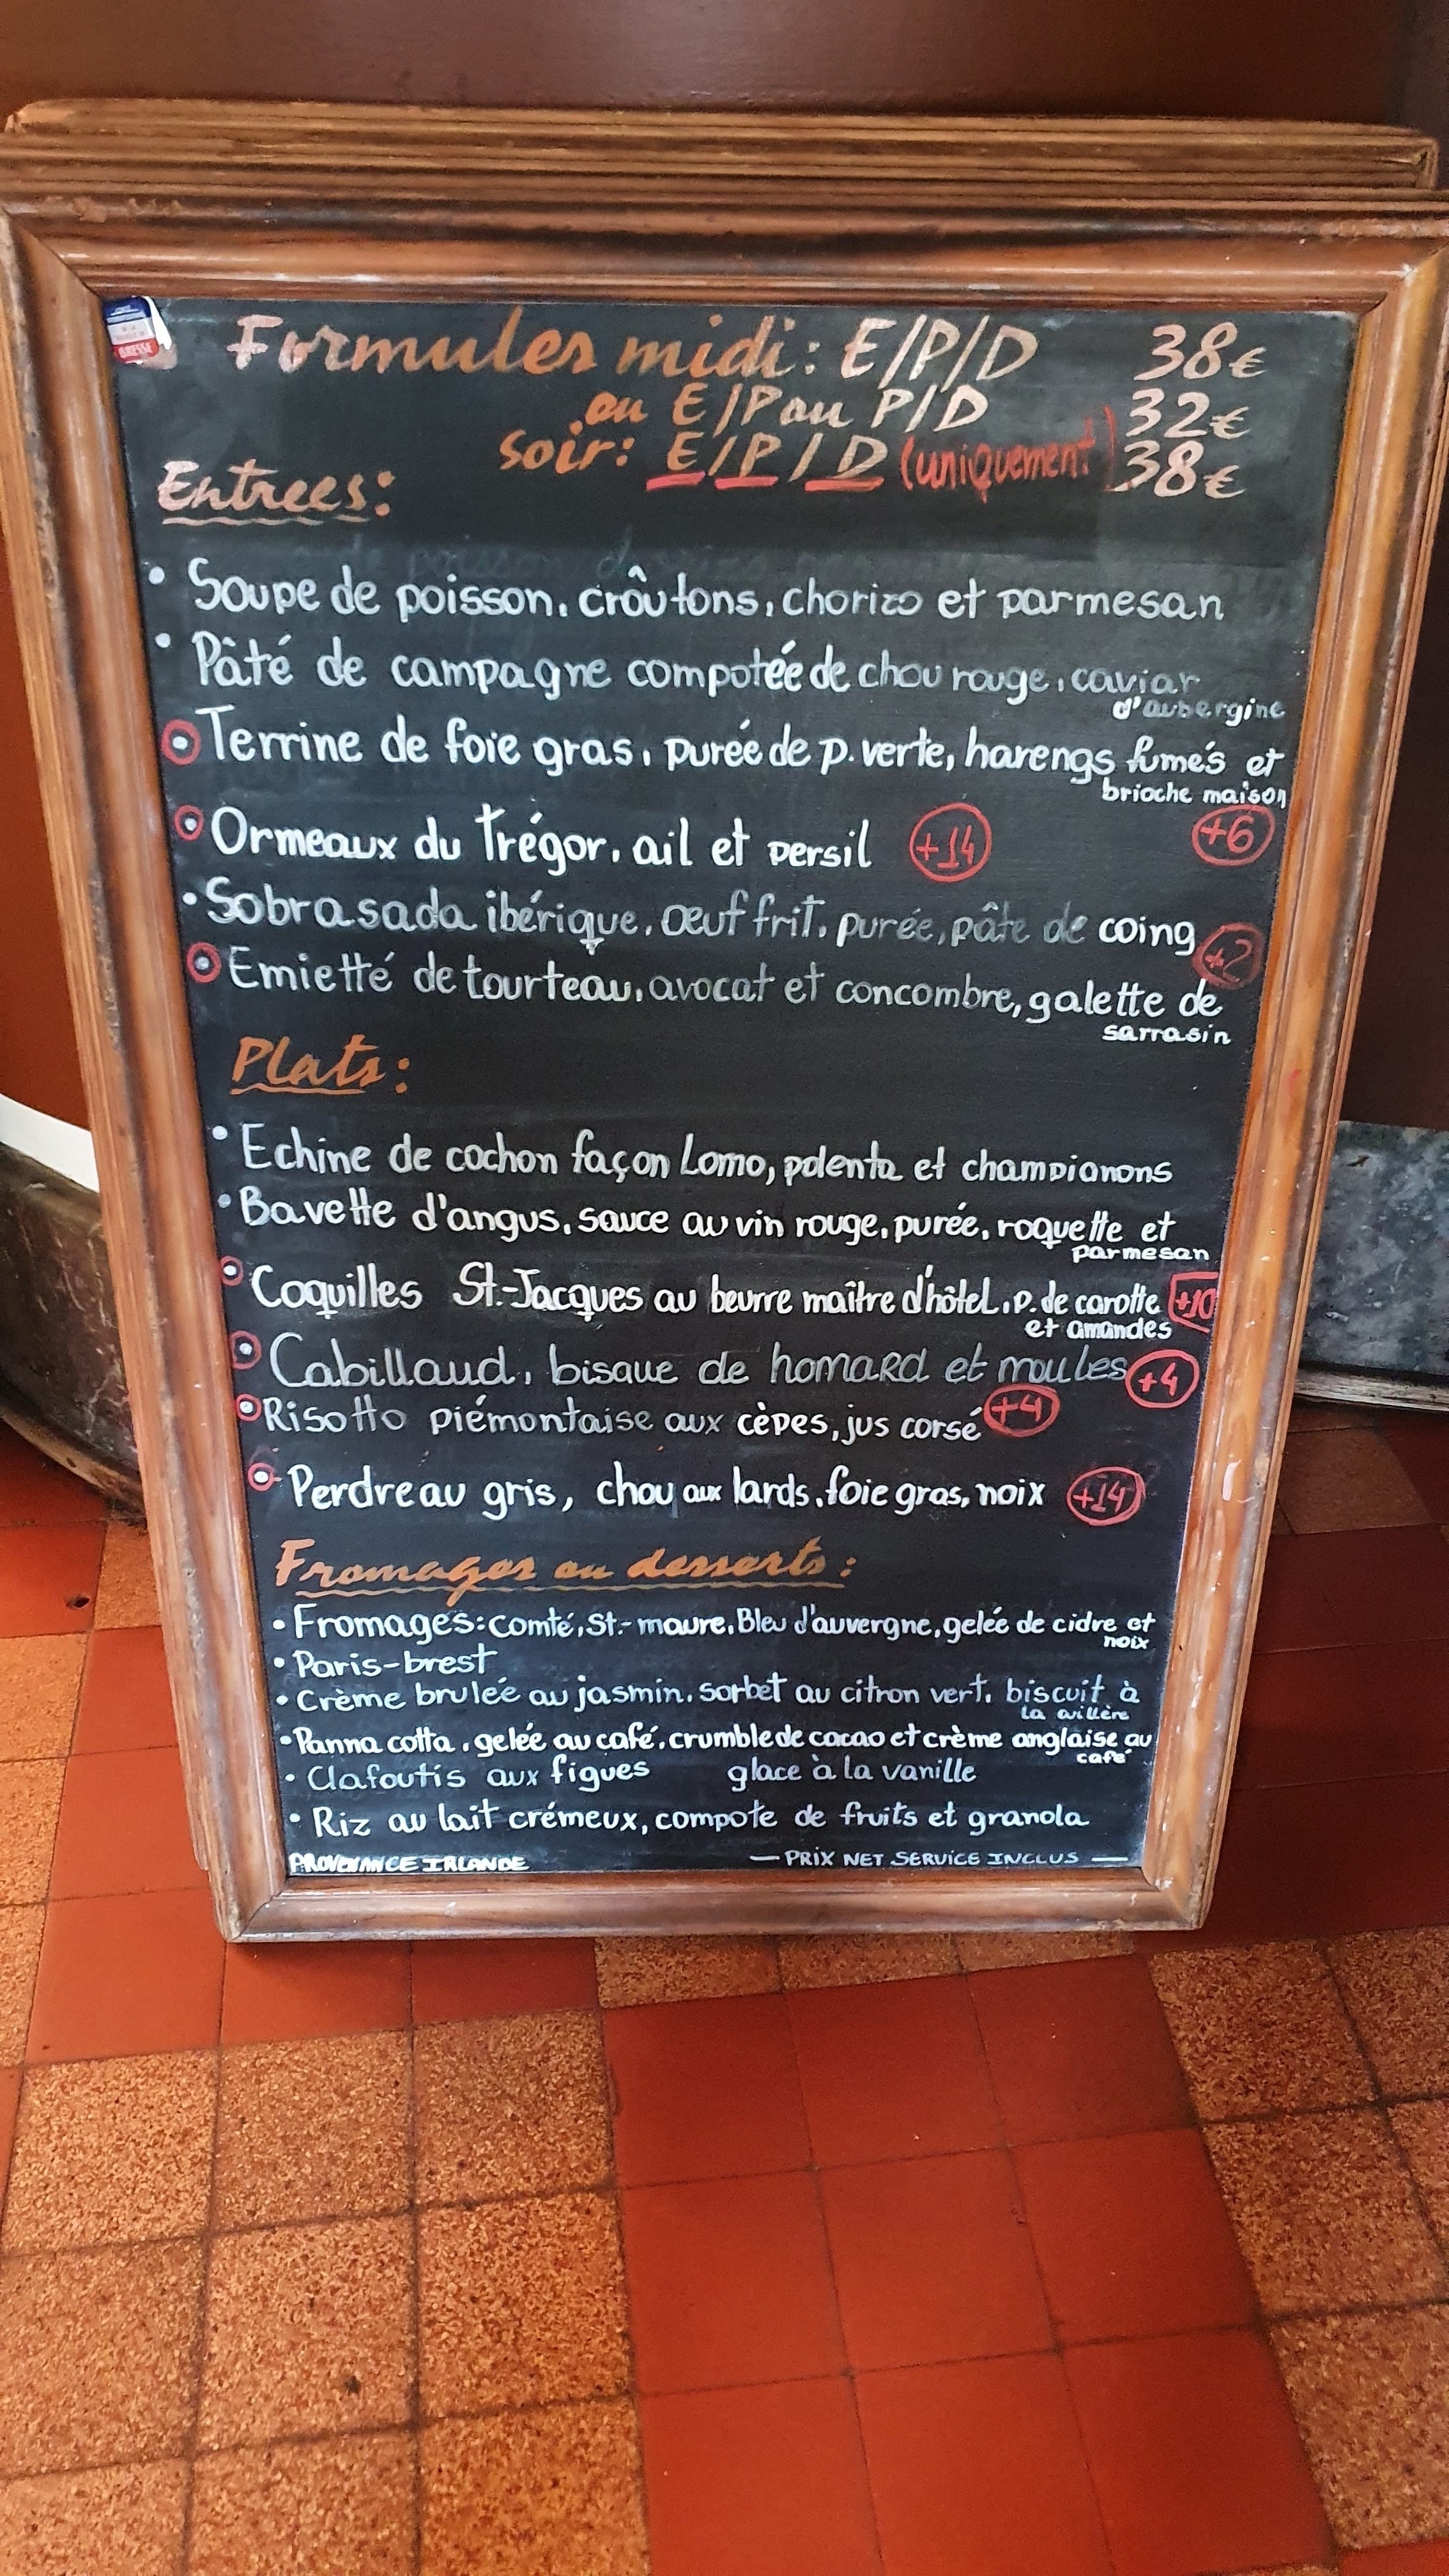 Formules midi: E/P/D 38€
ou E/P ou P/D 32€
soir: E/P/D (uniquement) 38€
Entrees:
• Soupe de poisson, croûtons, chorizo et parmesan
• Pâté de campagne compotée de chou rouge, caviar
d'aubergine
• Terrine de foie gras, purée de p. verte, harengs fumés et
brioche maison
+6
• Ormeaux du Trégor, ail et persil +14
• Sobrasada ibérique, œuf frit, purée, pâte de coing
+2
• Emietté de tourteau, avocat et concombre, galette de
sarrasin
Plats:
• Echine de cochon façon Lomo, polenta et champignons
• Bavette d'angus, sauce au vin rouge, purée, roquette et
parmesan
• Coquilles St.-Jacques au beurre maître d'hôtel, p. de carotte +10
et amandes
• Cabillaud, bisque de homard et moules +4
• Risotto piémontaise aux cèpes, jus corsé +4
• Perdreau gris, chou aux lards, foie gras, noix +14
Fromages ou desserts:
• Fromages: comté, St.-maure, Bleu d'auvergne, gelée de cidre et
noix
• Paris-brest
• Crème brulée au jasmin, sorbet au citron vert, biscuit à
la cuillère
• Panna cotta, gelée au café, crumble de cacao et crème anglaise au
café
• Clafoutis aux figues glace à la vanille
• Riz au lait crémeux, compote de fruits et granola
PROVENANCE IRLANDE — PRIX NET SERVICE INCLUS —
BRESSE